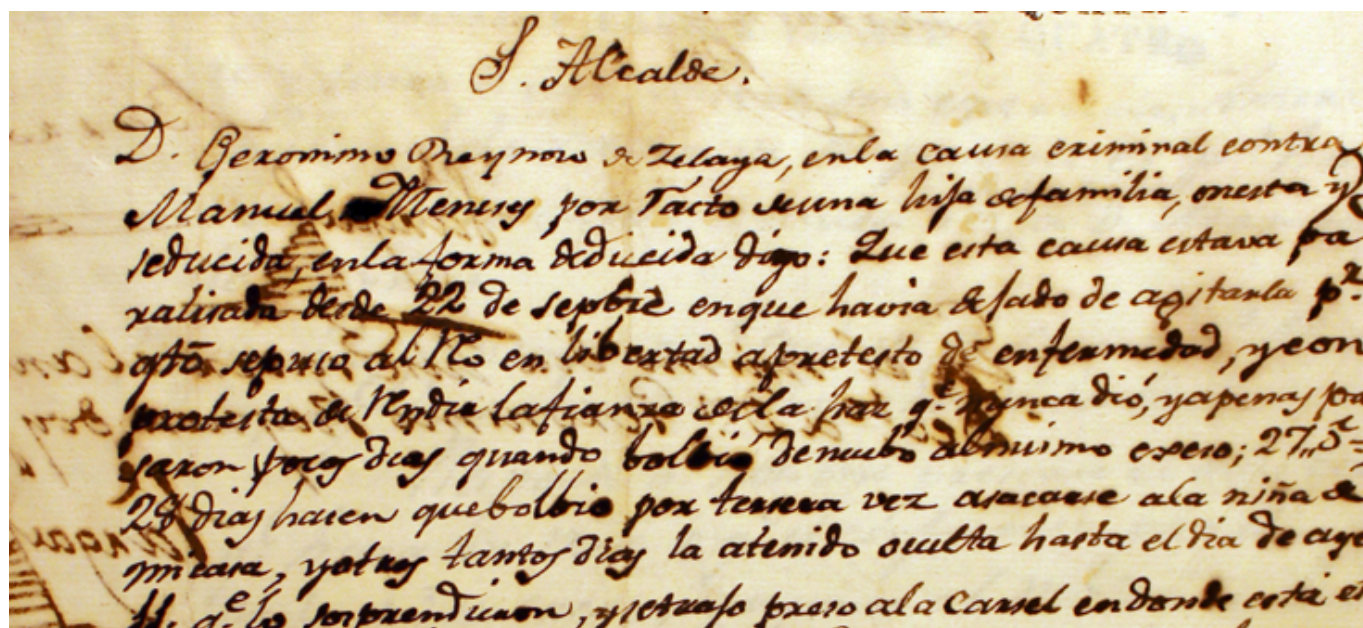 S. Alcalde.
D. Geronimo Reynoso de Zelaya, enla causa criminal contra
Manuel Meneses por Tacto de una hija de familia, onesta y
seducida, enla forma deducida digo: Que esta causa estava pa
ralisada desde 22 de sepbre enque havia dejado de agitarla pr.
qto. sepuso al Reo en libertad apretesto de enfermedad, y con
protesta de Rendir lafianza dela haz qe. Nunca dió, yapenas pa
saron pocos dias quando bolbió denuebo almismo exeso; 27, ó
28 dias hacen quebolbio por tersera vez asacarse ala niña de
mi casa, yotros tantos dias la atenido oculta hasta el dia de aye
11. qe. lo sorprendieron, y setrajo preso ala Carsel endonde está el